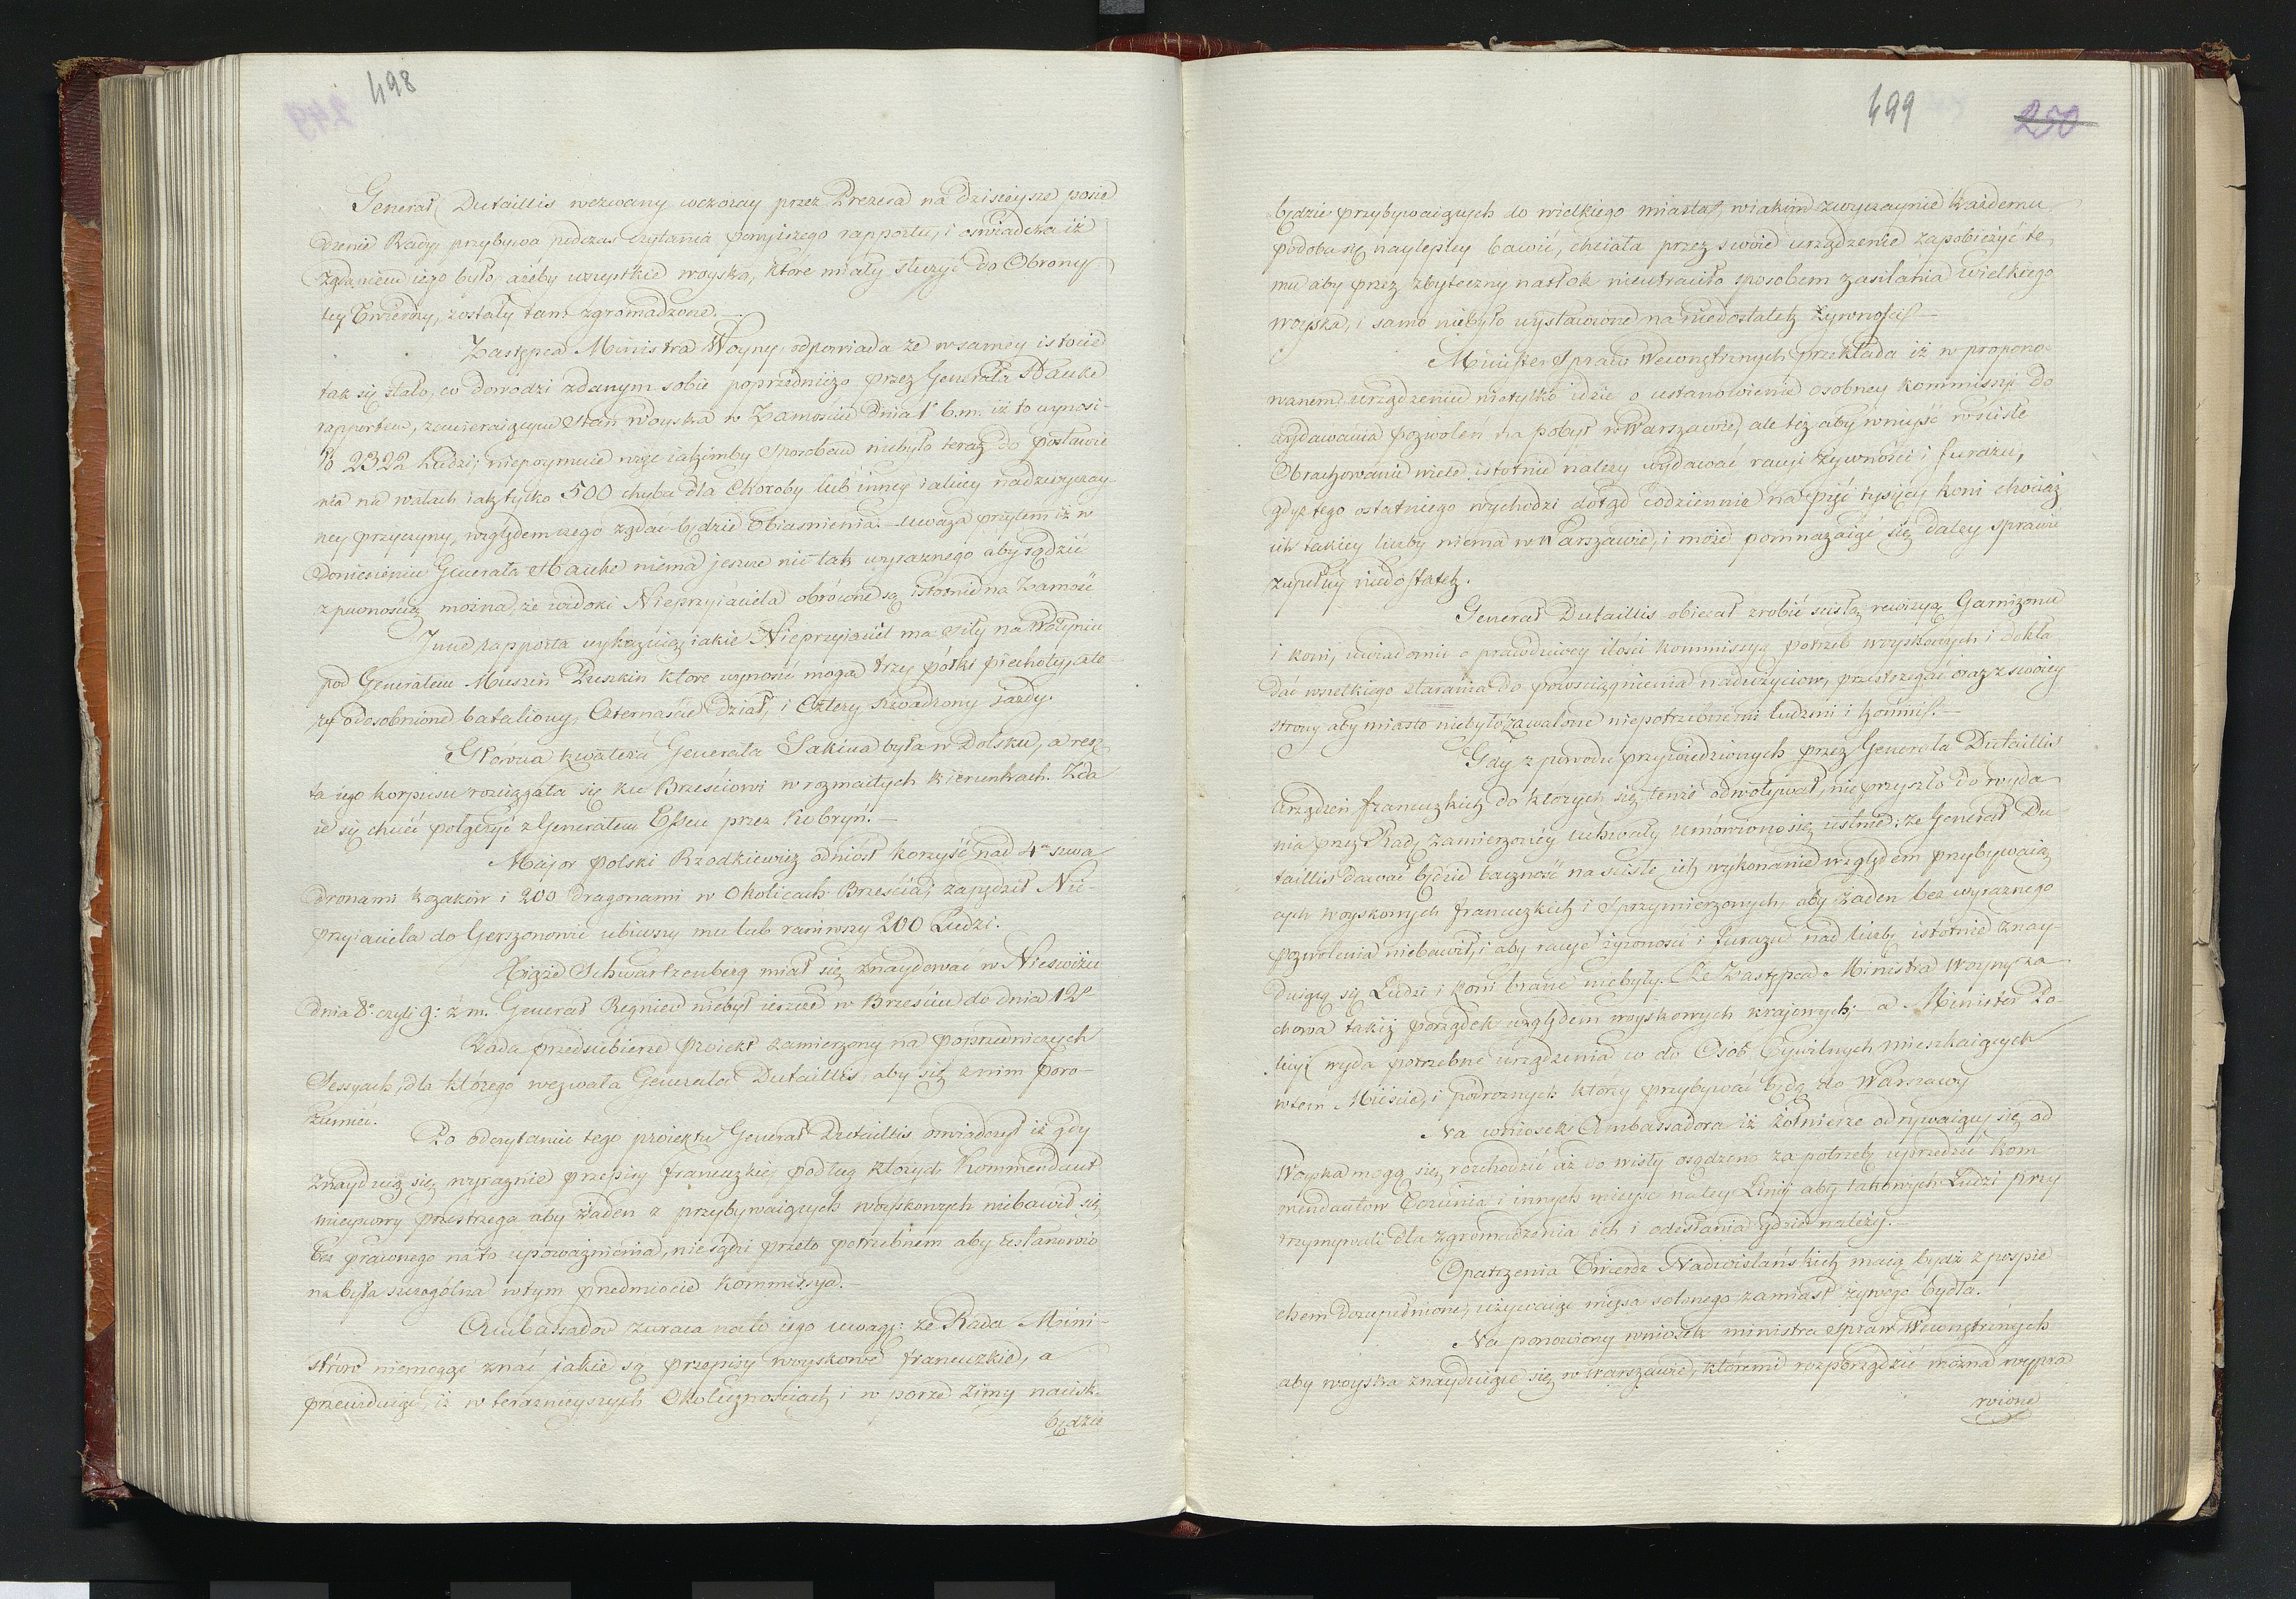 498
Generał Dutaillis wezwany wczoray przez Prezesa na dzisieysze posie
dzenie Rady, przybywa podczas czytania powyższego rapportu, i oświadcza iż
zdaniem iego było, ażeby wszystkie woyska, które miały służyć do Obrony
tey Twierdzy, zostały tam zgromadzone.—
Zastępca Ministra Woyny, odpowiada że w samey istocie
tak się stało, co dowodzi zdanym sobie poprzedniczo przez Generała Hauke
rapportem, zawieraiącym Stan Woyska w Zamościu dnia 1° b.m. iż to wynosi-
ło 2322 Ludzi; niepoymuie więc iakimby Sposobem niebyło teraz do postawie
nia na wałach iak tylko 500 chyba dla Choroby lub inney iakiey nadzwyczay-
ney przyczyny, względem czego żądać będzie Obiaśnienia.— uważa przytem iż w
doniesieniu Generała Hauke niema jeszcze nic tak wyraznego aby sądzić
z pewnością można, że widoki Nieprzyiaciela obrócone są istotnie na Zamość
Inne rapporta wykazuią iakie Nieprzyiaciel ma siły na Wołyniu
pod Generałem Muszin Puszkin które wynosić mogą trzy półki piechoty, czte-
ry odosobnione bataliony, Czternaście Dział, i Cztery szwadrony jazdy.
Główna kwatera Generała Sakina była w Dolsku, a resz
ta iego korpusu rozciągała się ku Brześciowi w rozmaitych kierunkach. Zda
ie się chcieć połączyć z Generałem Essen przez Kobryń.—
Major polski Rzodkiewicz odniósł korzyść nad 4ma szwa
dronami kozaków i 200 dragonami w Okolicach Brześcia; zapędził Nie-
przyiaciela do Gerszonowic ubiwszy mu lub raniwszy 200 Ludzi.
Xiąże Schwartzenberg miał się znaydować w Nieświżu
dnia 8° czyli 9° z.m. Generał Regnier niebył ieszcze w Brześciu do dnia 12°
Rada przedsiębierze proiekt zamierzony na poprzedniczych
Sessyach, dla którego wezwała Generała Dutaillis, aby się z nim poro-
zumieć.
Po odczytaniu tego proiektu Generał Dutaillis oświadczył iż gdy
znayduią się wyraźnie przepisy francuzkie, podług których Kommendant
mieyscowy przestrzega aby żaden z przybywaiących woyskowych niebawił się
bez prawnego na to upoważnienia, nie sądzi przeto potrzebnem aby ustanowio
na była szczególna w tym przedmiocie Kommissya.—
Ambassador zwraca na to iego uwagę: że Rada Mini-
strów niemogąc znać jakie są przepisy woyskowe francuzkie, a
przewiduiąc, iż w teraznieyszych Okolicznościach i w porze zimy nacisk
będzie
499
250
będzie przybywaiących do wielkiego miasta, w iakim zwyczaynie każdemu
podoba się naylepiey bawić, chciała przez swoie urządzenie zapobieżyć te-
mu aby przez zbyteczny natłok nieutraciło sposobem zasilania wielkiego
woyska, i samo niebyło wystawione na niedostatek żywności.—
Minister Spraw Wewnętrznych przekłada iż w propono-
wanem urządzeniu nietylko idzie o ustanowienie osobney kommissyi do
wydawania pozwoleń na pobyt w Warszawie, ale też aby wniyść w ścisłe
Obrachowanie wiele istotnie należy wydawać racyi żywności i furażu,
gdyż tego ostatniego wychodzi dotąd codziennie na pięć tysięcy koni chociaż
ich takiey liczby niema w Warszawie, i może pomnażaiąc się daley sprawić
zupełny niedostatek.
Generał Dutaillis obiecał zrobić ścisłą rewizyą Garnizonu
i koni, uwiadomić o prawdziwey ilości Kommissyą potrzeb woyskowych i dokła-
dać wszelkiego starania do powściągnienia nadużyciów, przestrzegać oraz z swoiey
strony aby miasto niebyło zawalone niepotrzebnemi ludzmi i końmi.—
Gdy z powodu przywiedzionych przez Generała Dutaillis
urządzeń francuzkich do których się tenże odwoływał, nie przyszło do wyda
nia przez Radę zamierzoney uchwały umówiono się ustnie: że Generał Du
taillis dawać będzie baczność na ścisłe ich wykonanie względem przybywaią
cych woyskowych francuzkich i sprzymierzonych, aby żaden bez wyraznego
pozwolenia niebawił, i aby racye żywności i furażu nad liczbę istotnie znay-
duiącą się Ludzi i koni brane niebyły. Że Zastępca Ministra Woyny za
chowa takiż porządek względem woyskowych kraiowych; a Minister Po-
licyi wyda potrzebne urządzenia co do Osób Cywilnych mieszkaiących
w tem Mieście, i podróżnych którzy przybywać będą do Warszawy
Na wniosek Ambassadora iż żołnierze odrywaiący się od
Woyska mogą się rozchodzić aż do wisły osądzono za potrzebę uprzedzić Kom
mendantów Torunia i innych mieysc na tey Linii aby takowych Ludzi przy
trzymywali dla zgromadzenia ich i odesłania gdzie należy.—
Opatrzenia Twierdz Nadwiślańskich maią bydź z pospie-
chem dozupełnione, używaiąc mięsa solonego zamiast żywego bydła.
Na ponowiony wniosek ministra Spraw Wewnętrznych
aby woyska znayduiące się w Warszawie, któremi rozporządzić można wypra
wione